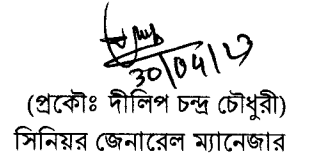 30/04/23
(প্রকৌঃ দীলিপ চন্দ্র চৌধুরী)
সিনিয়র জেনারেল ম্যানেজার